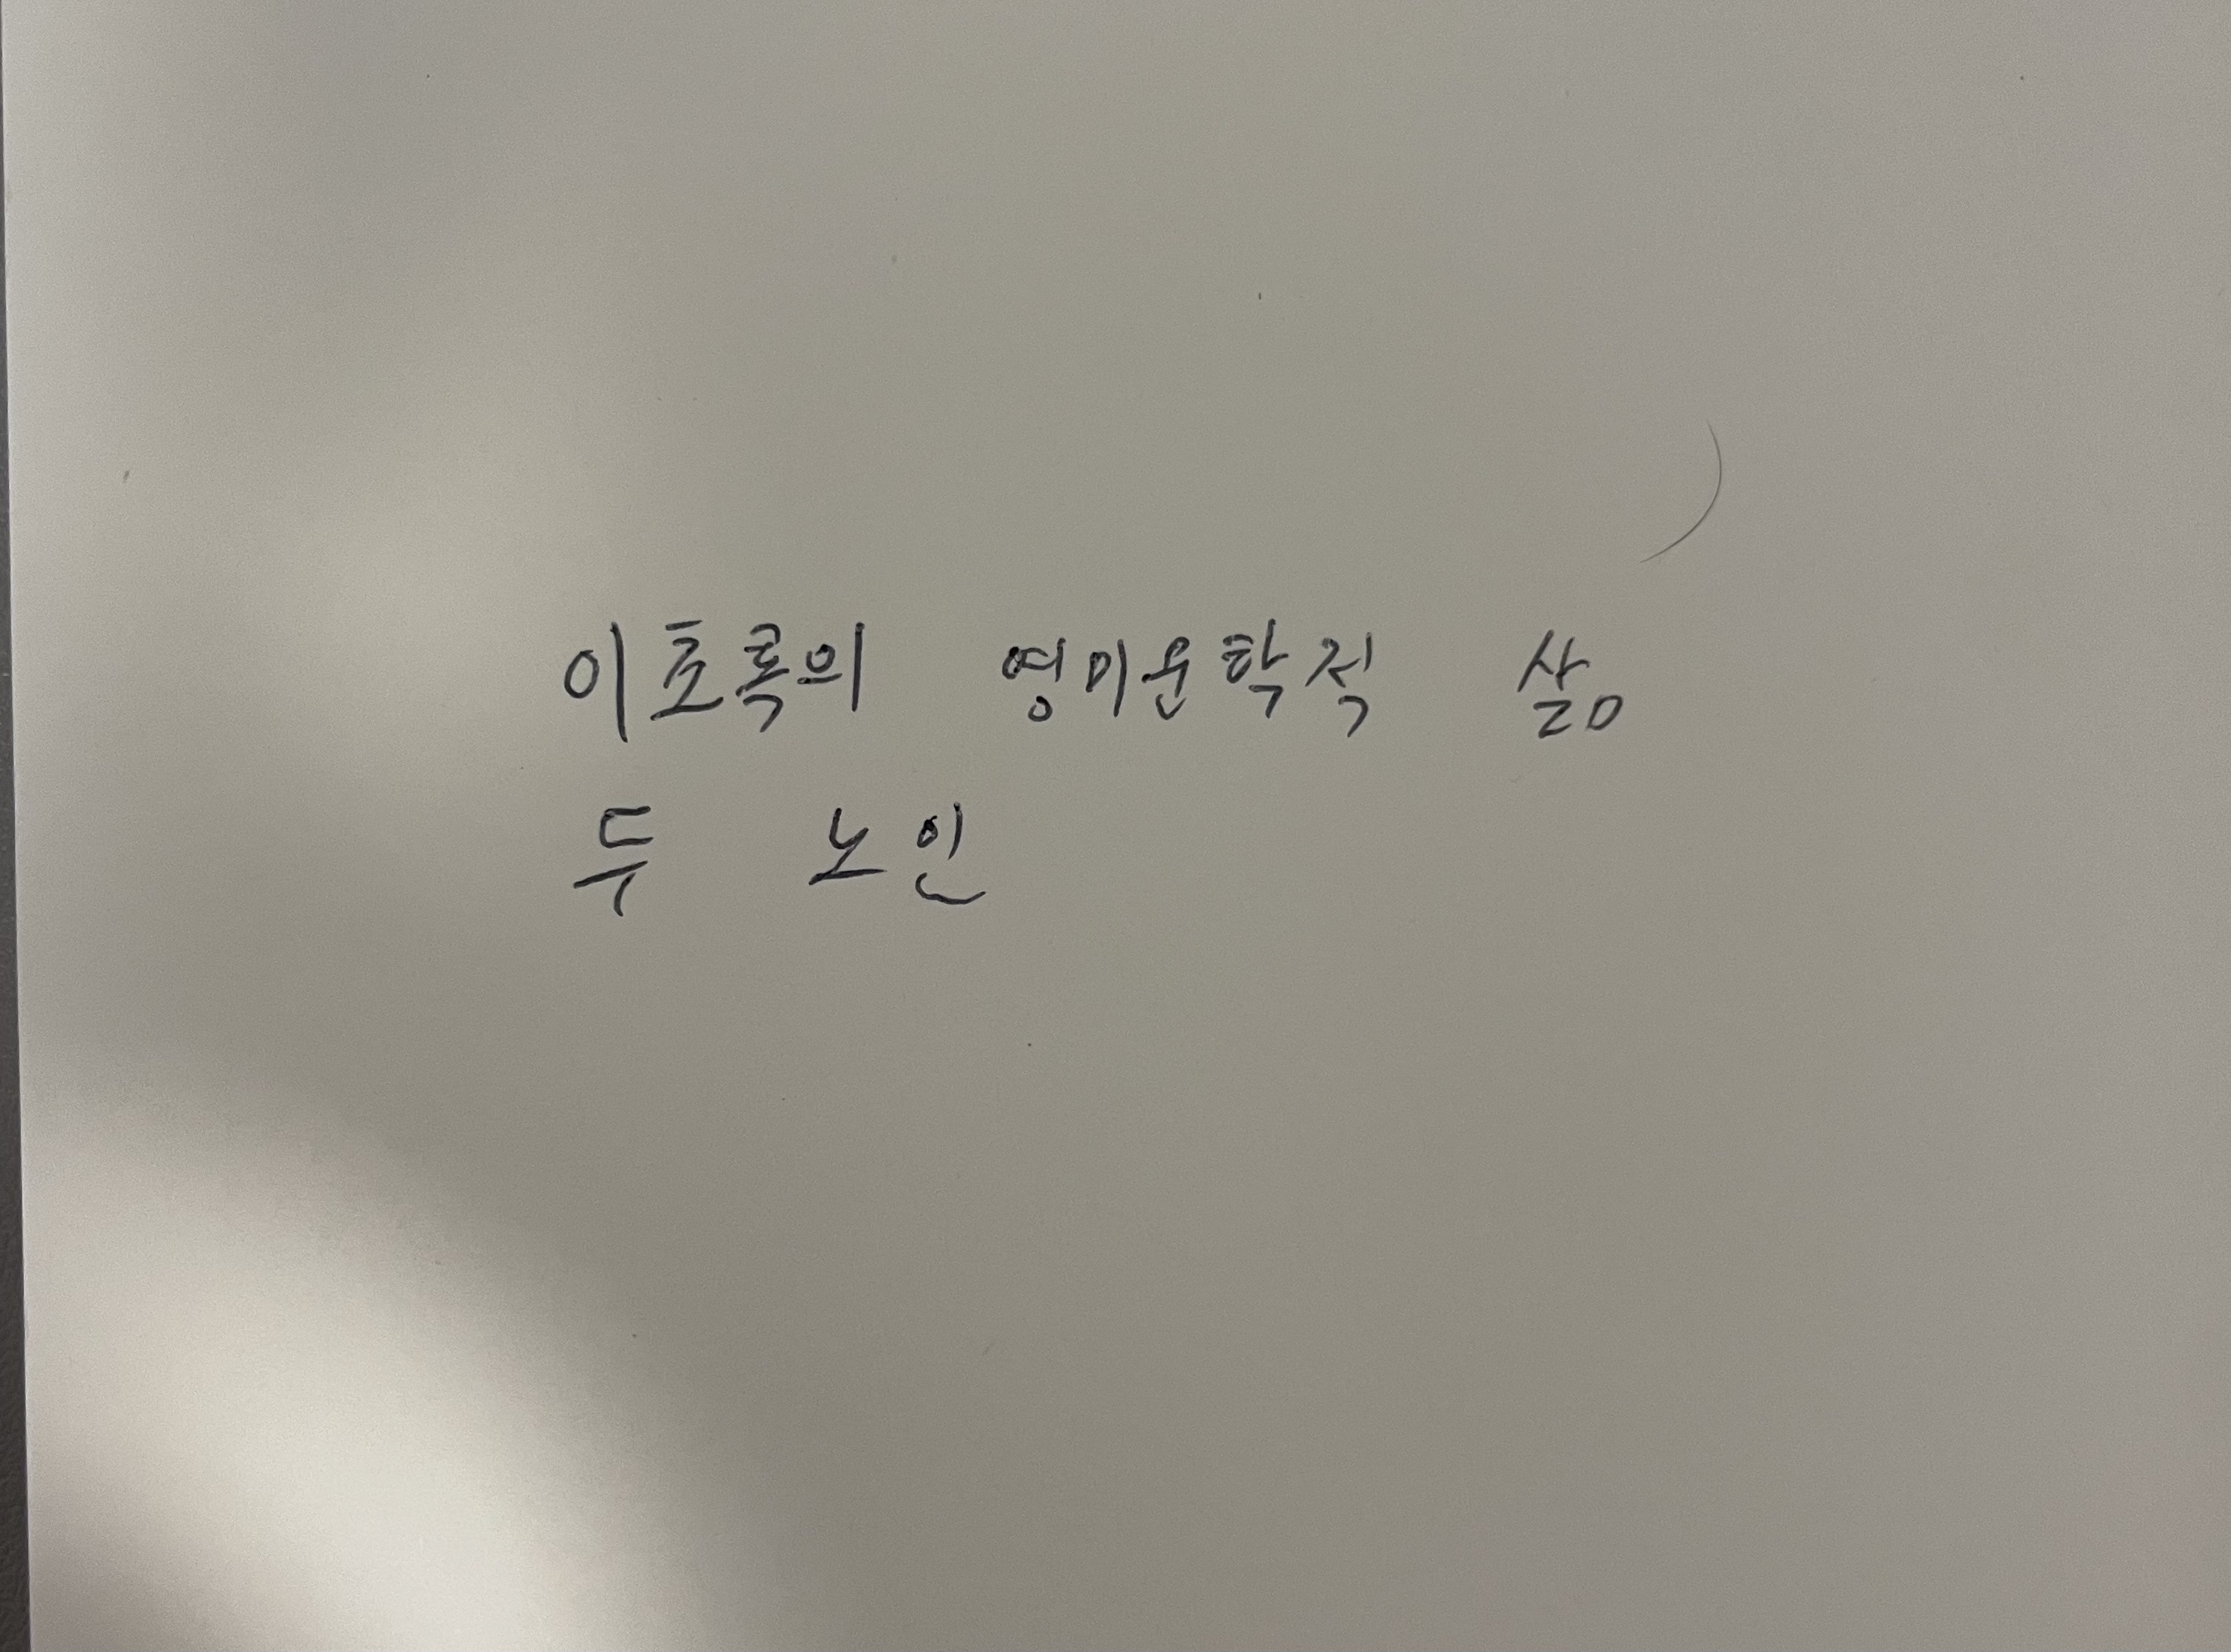 이초록의 영미문학적 삶
두 노인